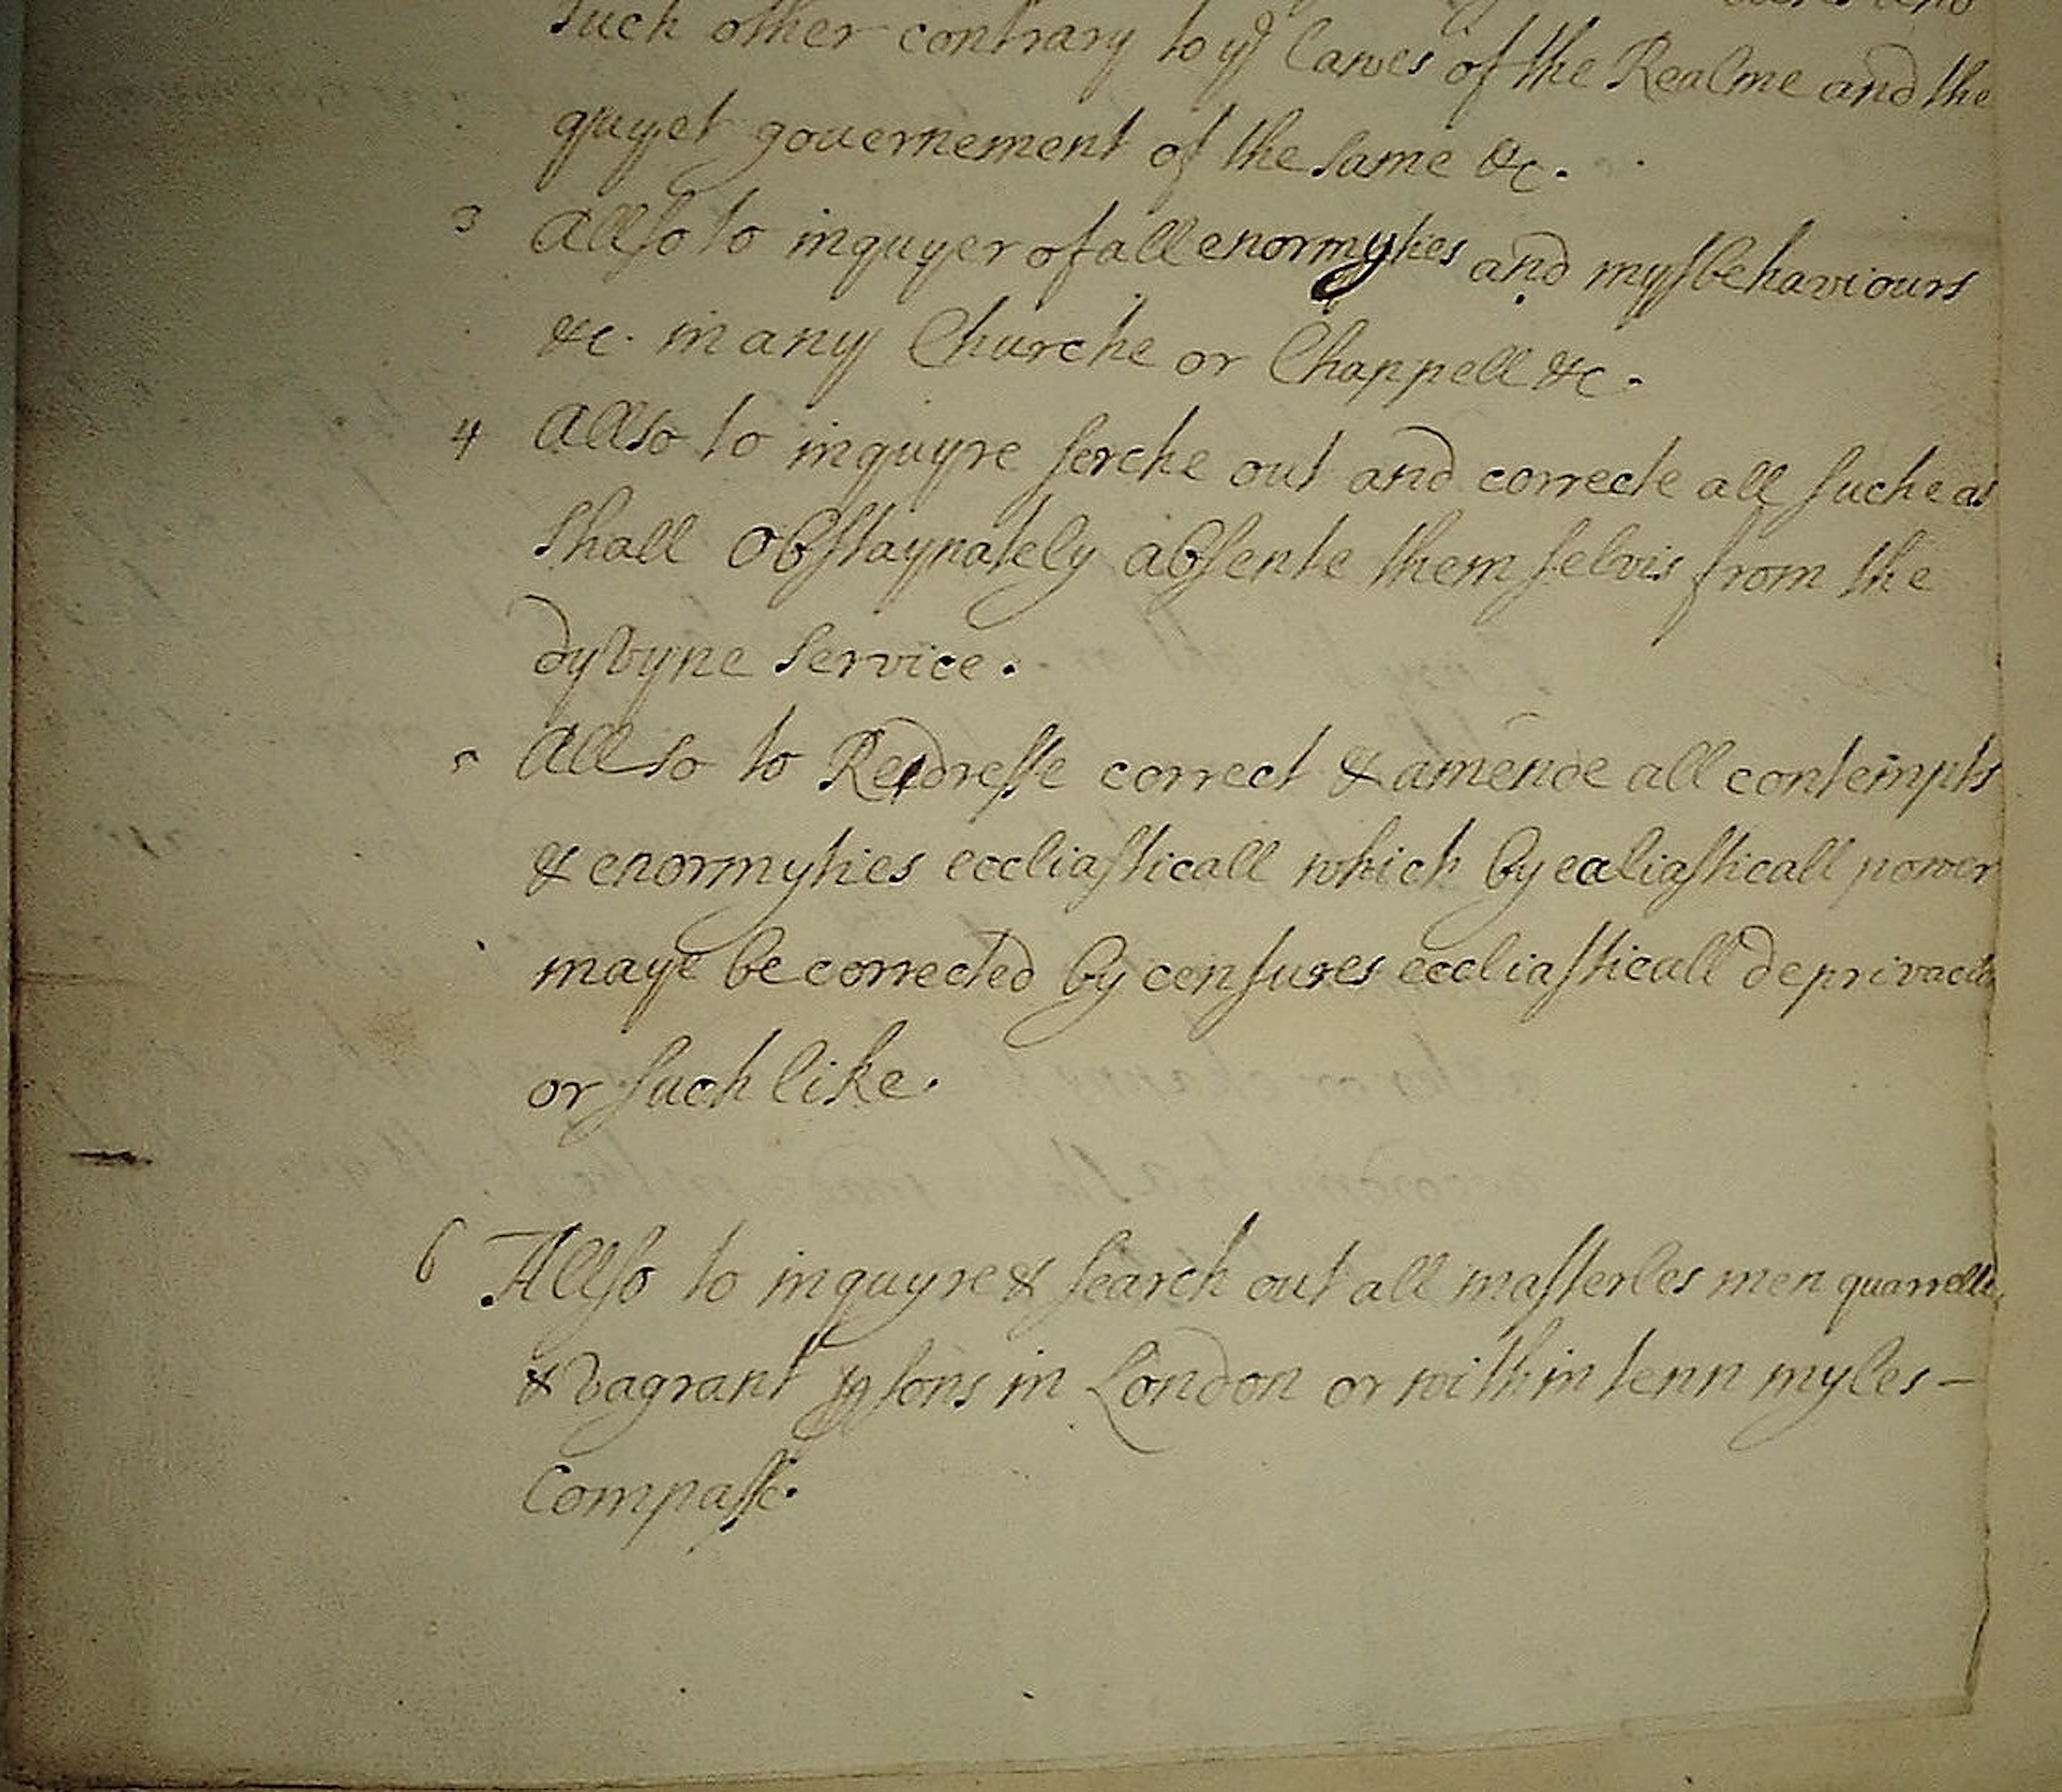 such other contrary to yͤ Lawes of the Realme and the
quyet gouernement of the same &c.
3 Allso to inquyer of all enormyties and mysbehaviours
&c. in any Churche or Chappell &c.
4 Allso to inquyre serche out and correcte all suche as
shall obstaynately absente them selvis from the
dyvyne service.
5 Allso to Redresse correct & amende all contempts
& enormyties eccliasticall which by ealiasticall power
maye be corrected by censures eccliasticall deprivacion
or such like.
6 Allso to inquyre & search out all masterles men
& vagrant psons in London or within tenn myles –
Compasse.